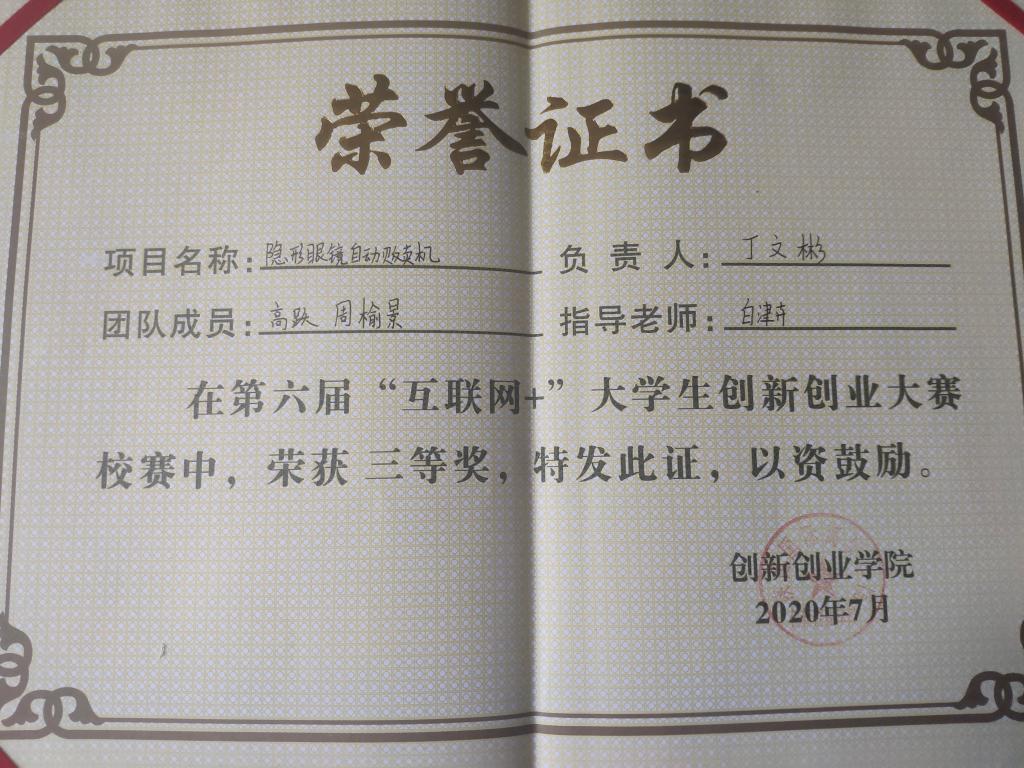 荣誉证书
项目名称：隐形眼镜自动贩卖机 负责人：丁文彬
团队成员：高跃 周榆景 指导老师：白津卉
在第六届“互联网+”大学生创新创业大赛
校赛中，荣获 三等奖，特发此证，以资鼓励。
创新创业学院
2020年7月